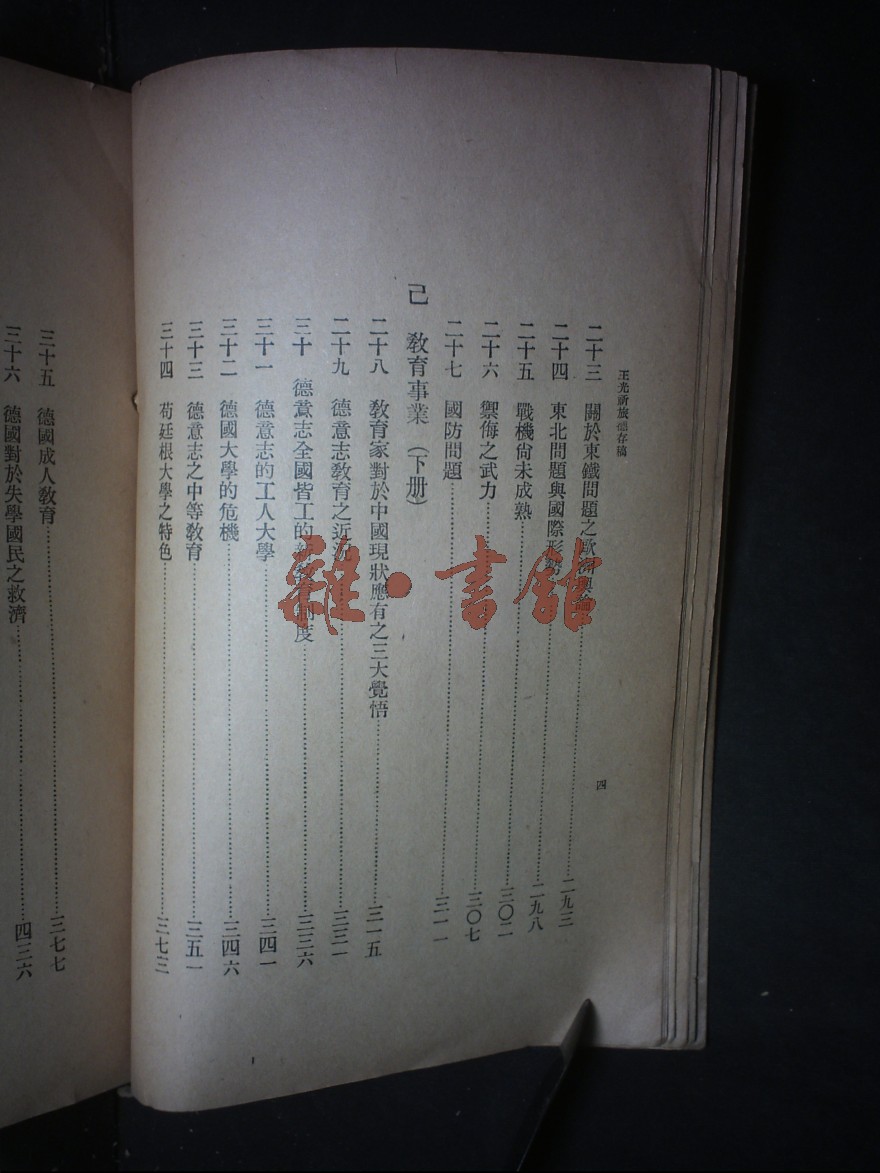 王光祈旅德存稿
四
二十三 關於東鐵問題之歐洲輿論 二九三
二十四 東北問題與國際形勢 二九八
二十五 戰機尙未成熟 三〇二
二十六 禦侮之武力 三〇七
二十七 國防問題 三一一
己 敎育事業（下册）
二十八 敎育家對於中國現狀應有之三大覺悟 三一五
二十九 德意志敎育之近況 三三一
三十 德意志全國皆工的新敎育制度 三三六
三十一 德意志的工人大學 三四一
三十二 德國大學的危機 三四六
三十三 德意志之中等敎育 三五一
三十四 苟廷根大學之特色 三七三
三十五 德國成人敎育 三七七
三十六 德國對於失學國民之救濟 四三六
雜·書館